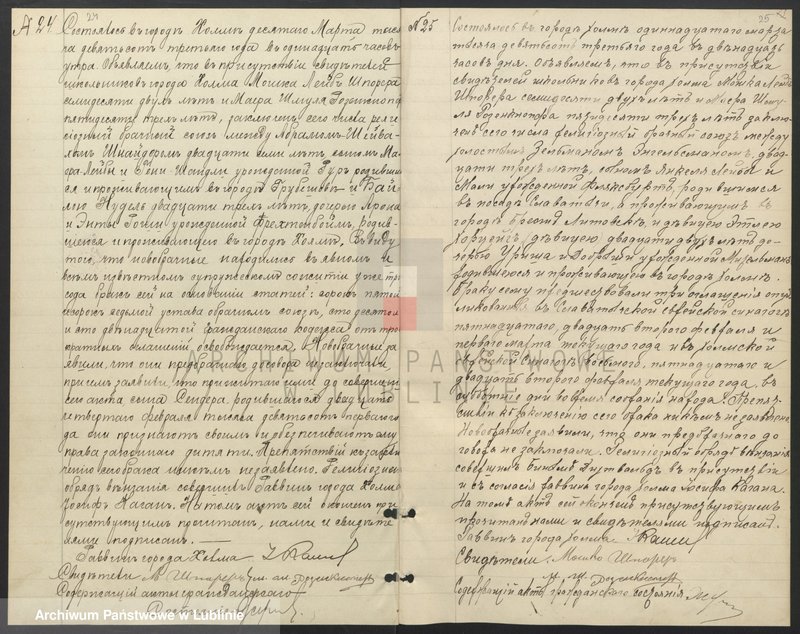 24
№ 24
Состоялось въ городѣ Холмѣ десятаго Марта тыся
ча девятьсотъ третьяго года въ одинадцать часовъ
утра. Объявляемъ, что въ присутствіи свидѣтелей
школьниковъ города Холма Мошка Лейбъ Шпорера
семидесяти двухъ лѣтъ и Маера Шмуля
пятидесяти трехъ лѣтъ, заключенъ сего числа рели
гіозный брачный союзъ между Абрамомъ-Шейва
Шнайдеромъ двадцати семи лѣтъ сыномъ Ма
и Шайндли урожденной Гуръ родивши
ся и проживающимъ въ городѣ Грубешовѣ и Бай
лею Нудель двадцати трехъ лѣтъ, дочерью Арона
и Энты урожденной родив
шеюся и проживающею въ городѣ Холмѣ. Въ виду
того, что новобрачные находились въ явномъ и
всѣмъ извѣстномъ супружескомъ сожитіи уже три
года бракъ сей на основаніи статей: сорокъ пятой
сорокъ седьмой устава о брачномъ союзѣ, сто десятой
и сто двѣнадцатой Гражданскаго кодекса отъ трое
кратныхъ оглашеній освобождается. Новобрачные за
явили, что они предбрачнаго договора не заключали
при чемъ заявили, что прижитаго ими до совершені
сего акта сына Сендера, родившагося двадцать
четвертаго февраля тысяча девятьсотъ перваго го
да они признаютъ своимъ и обезпечиваютъ ему
права законнаго дитяти. Препятствій къ заклю
ченію сего брака никѣмъ незаявлено. Религіозный
обрядъ вѣнчанія совершилъ Раввинъ города Холма
Іосифъ Каганъ. На томъ актъ сей окончен при
сутствующимъ прочитанъ, нами и свидѣте
лями подписанъ. —
Раввинъ города Холма
Свидѣтели М. Шпореръ
Содержащій акты гражданскаго
25
№ 25
Состоялось въ городѣ Холмѣ одиннадцатаго марта
тысяча девятьсотъ третьяго года въ двѣнадцать
часовъ дня. Объявляемъ, что въ присутствіи
свидѣтелей школьниковъ города Холма Мошка Лейбы
Шпорера семидесяти двухъ лѣтъ и Маера Шму
ля пятидесяти трехъ лѣтъ заклю
ченъ сего числа религіозный брачный союзъ между
холостымъ Зельманомъ Энгельсманомъ, двад
цати трехъ лѣтъ, сыномъ Анкеля Лейбы и
Мали урожденной родившимся
въ посадѣ Славатычи, а проживающимъ въ
городѣ Брестъ Литовскѣ, и дѣвицею Этлею
дѣвицею двадцати двухъ лѣтъ до
черью и Добрыси урожденной
родившеюся и проживающею въ городѣ Холмѣ.
Браку сему предшествовали три оглашенія опуб
ликованныя въ Славатычской еврейской синагогѣ
пятнадцатаго, двадцать второго февраля и
перваго марта текущаго года и въ Холмской
еврейской синагогѣ восьмого, пятнадцатаго и
двадцать второго февраля текущаго года, въ
субботніе дни во время собранія народа. Препят
ствій къ заключенію сего брака никѣмъ не заявлено.
Новобрачные заявили, что они предбрачнаго до
говора не заключали. Религіозный обрядъ вѣнчанія
совершилъ въ присутствіи
и съ согласія раввина города Холма Іосифа Кагана.
На томъ актъ сей оконченъ присутствующимъ
прочитанъ нами и свидѣтелями подписанъ.
Раввинъ города Холма
Свидѣтели Мошко Шпореръ
Содержащій акты гражданскаго состоянія
ARCHIWUM PAŃSTWOWE
W LUBLINIE
Archiwum Państwowe w Lublinie